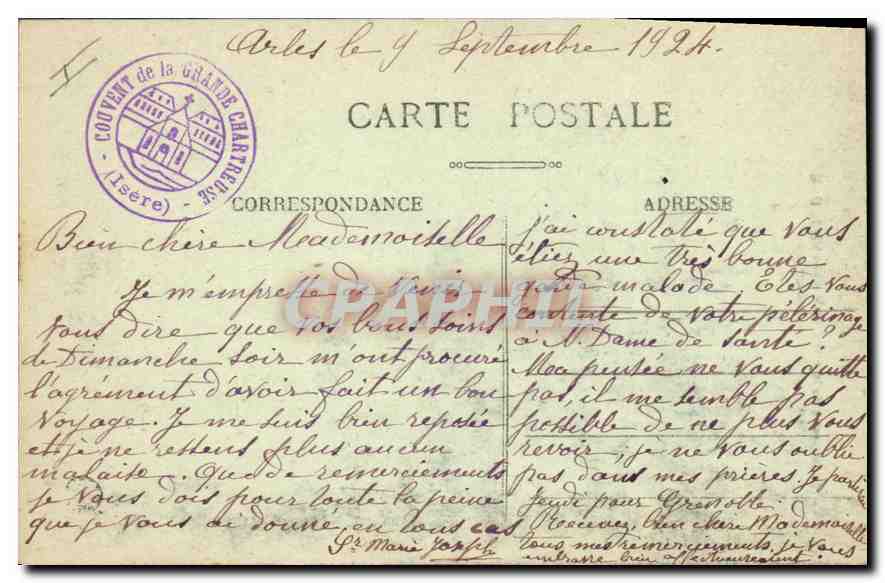 Arles le 9 Septembre 1924.
COUVENT de la GRANDE CHARTREUSE
(Isère)
CARTE POSTALE
CORRESPONDANCE
Bien chère Mademoiselle
Je m'empresse de venir
vous dire que vos bons soins
de Dimanche soir m'ont procuré
l'agrément d'avoir fait un bon
voyage. Je me suis bien reposée
et je ne ressens plus aucun
malaise. Que de remerciements
je vous dois pour toute la peine
que je vous ai donné, en tous cas
ADRESSE
j'ai constaté que vous
étiez une très bonne
garde malade. Etes-vous
contente de votre pélérinage
à N. Dame de santé?
Ma pensée ne vous quitte
pas, il me semble pas
possible de ne plus vous
revoir, je ne vous oublie
pas dans mes prières. Je partirai
Jeudi pour Grenoble.
Recevez, bien chère Mademoiselle
tous mes remerciements, je vous
embrasse bien affectueusement.
Sr Marie Joseph
CPAPHIL